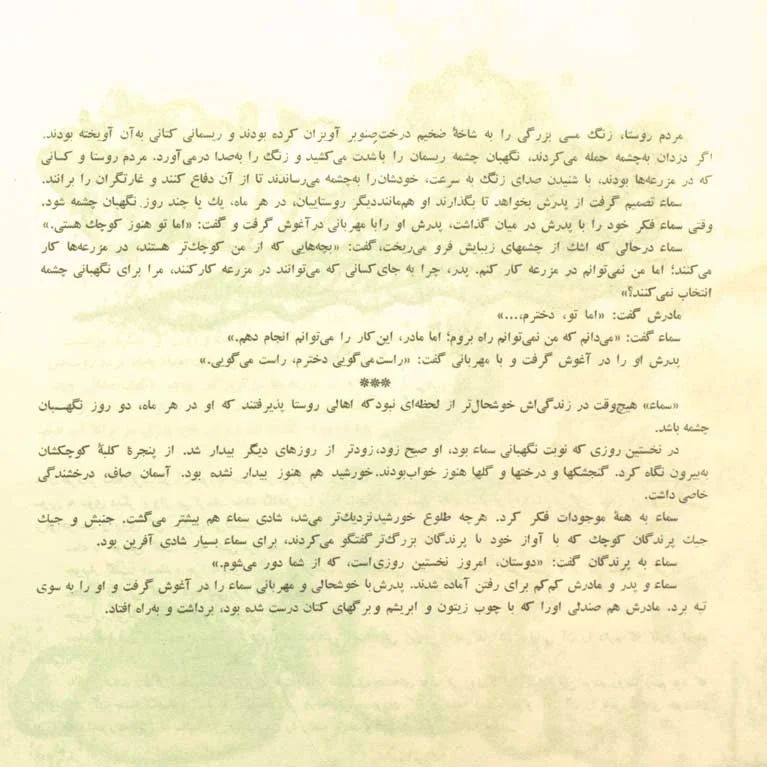 مردم روستا، زنگ مسی بزرگی را به شاخهٔ ضخیم درخت صنوبر آویزان کرده بودند و ریسمانی کتانی به آن آویخته بودند.
اگر دزدان به‌چشمه حمله می‌کردند، نگهبان چشمه ریسمان را با شدت می‌کشید و زنگ را به‌صدا درمی‌آورد. مردم روستا و کسانی
که در مزرعه‌ها بودند، با شنیدن صدای زنگ به سرعت، خودشان را به‌چشمه می‌رساندند تا از آن دفاع کنند و غارتگران را برانند.
سماء تصمیم گرفت از پدرش بخواهد تا بگذارند او هم‌مانند دیگر روستاییان، در هر ماه، یك یا چند روز نگهبان چشمه شود.
وقتی سماء فکر خود را با پدرش در میان گذاشت، پدرش او را با مهربانی در آغوش گرفت و گفت: «اما تو هنوز کوچك هستی.»
سماء درحالی که اشك از چشمهای زیبایش فرو می‌ریخت، گفت: «بچه‌هایی که از من کوچك‌تر هستند، در مزرعه‌ها کار
می‌کنند؛ اما من نمی‌توانم در مزرعه کار کنم. پدر، چرا به جای کسانی که می‌توانند در مزرعه کارکنند، مرا برای نگهبانی چشمه
انتخاب نمی‌کنند؟»
مادرش گفت: «اما تو، دخترم،...»
سماء گفت: «می‌دانم که من نمی‌توانم راه بروم؛ اما مادر، این‌کار را می‌توانم انجام دهم.»
پدرش او را در آغوش گرفت و با مهربانی گفت: «راست می‌گویی دخترم، راست می‌گویی.»
***
«سماء» هیچ‌وقت در زندگی‌اش خوشحال‌تر از لحظه‌ای نبود که اهالی روستا پذیرفتند که او در هر ماه، دو روز نگهبان
چشمه باشد.
در نخستین روزی که نوبت نگهبانی سماء بود، او صبح زود، زودتر از روزهای دیگر بیدار شد. از پنجرهٔ کلبهٔ کوچکشان
به‌بیرون نگاه کرد. گنجشکها و درختها و گلها هنوز خواب‌بودند. خورشید هم هنوز بیدار نشده بود. آسمان صاف، درخشندگی
خاصی داشت.
سماء به همهٔ موجودات فکر کرد. هرچه طلوع خورشید نزدیك‌تر می‌شد، شادی سماء هم بیشتر می‌گشت. جنبش و جیك
جیك پرندگان کوچك که با آواز خود با پرندگان بزرگ‌تر گفتگو می‌کردند، برای سماء بسیار شادی آفرین بود.
سماء به پرندگان گفت: «دوستان، امروز نخستین روزی‌است، که از شما دور می‌شوم.»
سماء و پدر و مادرش کم‌کم برای رفتن آماده شدند. پدرش با خوشحالی و مهربانی سماء را در آغوش گرفت و او را به سوی
تپه برد. مادرش هم صندلی او را که با چوب زیتون و ابریشم و برگهای کتان درست شده بود، برداشت و به‌راه افتاد.